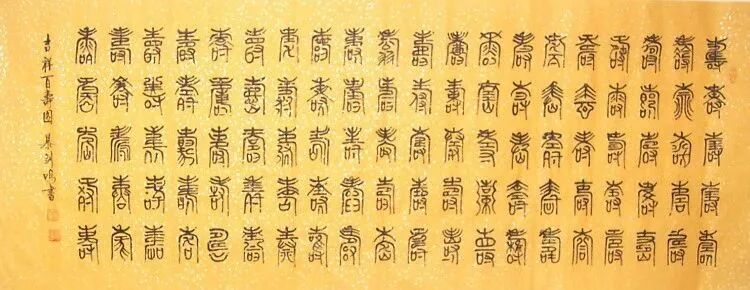 壽壽壽壽壽
壽壽壽壽壽
壽壽壽壽壽
壽壽壽壽壽
壽壽壽壽壽
壽壽壽壽壽
壽壽壽壽壽
壽壽壽壽壽
壽壽壽壽壽
壽壽壽壽壽
壽壽壽壽壽
壽壽壽壽壽
壽壽壽壽壽
壽壽壽壽壽
壽壽壽壽壽
壽壽壽壽壽
壽壽壽壽壽
壽壽壽壽壽
壽壽壽壽壽
壽壽壽壽壽
吉祥百壽图 書